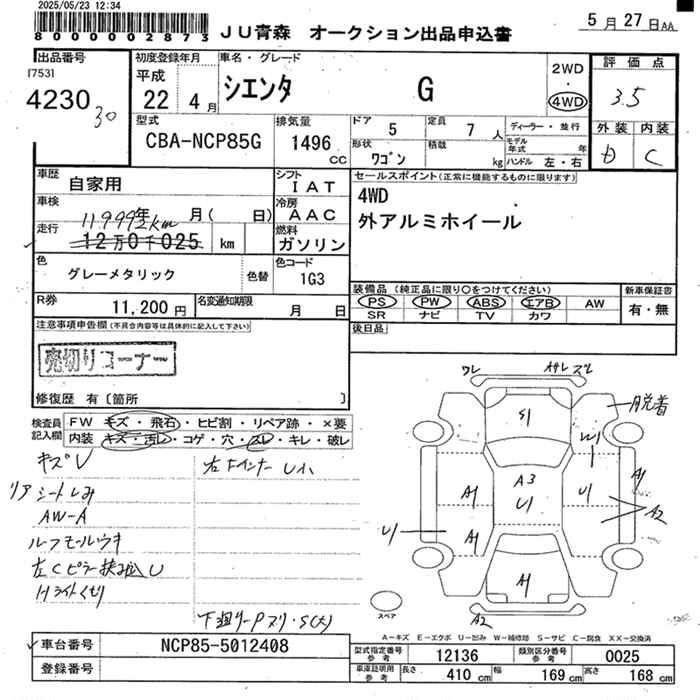 2025/05/23 12:34
8000002873
JU青森 オークション出品申込書
5月27日AA
出品番号
[753]
4230
30
初度登録年月
平成
22 4月
車名・グレード
シエンタ G
2WD
・
4WD
評価点
3.5
外装 内装
D C
型式
CBA-NCP85G
排気量
1496
cc
ドア 5
定員 7人
ディーラー・並行
形状 ワゴン
積載 kg
モデル年式 年
ハンドル 左・右
車歴
自家用
シフト
IAT
車検
年 月( 日)
冷房
AAC
走行
119992km
12万0千025 km
燃料
ガソリン
セールスポイント(正常に機能するものに限ります)
4WD
外アルミホイール
色
グレーメタリック
色替
色コード
1G3
装備品 (純正品に限り○をつけてください)
新車保証書
PS PW ABS エアB AW
SR ナビ TV カワ
有・無
R券
11,200円
名変通知期限
月 日
後日品
注意事項申告欄(不具合内容等は具体的に記入して下さい)
売切りコーナー
修復歴 有〔箇所 〕
検査員
記入欄
FW キズ・飛石・ヒビ割・リペア跡・×要
内装 キズ・汚レ・コゲ・穴・スレ・キレ・破レ
キズU
リアシートしみ
AW-A
ルーフモールウキ
左Cピラー挟み込U
Hライトくもり
左Fインナー U小
下廻り-Pスリ・S(大)
ワレ
スレ
脱着
S1
W1
A3
U1
A1
A1
U1
A1
A2
U1
A1
A2
スペア
A-キズ E-エクボ U-凹み W-補修跡 S-サビ C-腐食 XX-交換済
車台番号
NCP85-5012408
登録番号
型式指定番号
参考
12136
類別区分番号
参考
0025
車庫証明用
参考
長さ 410 cm
幅 169 cm
高さ 168 cm